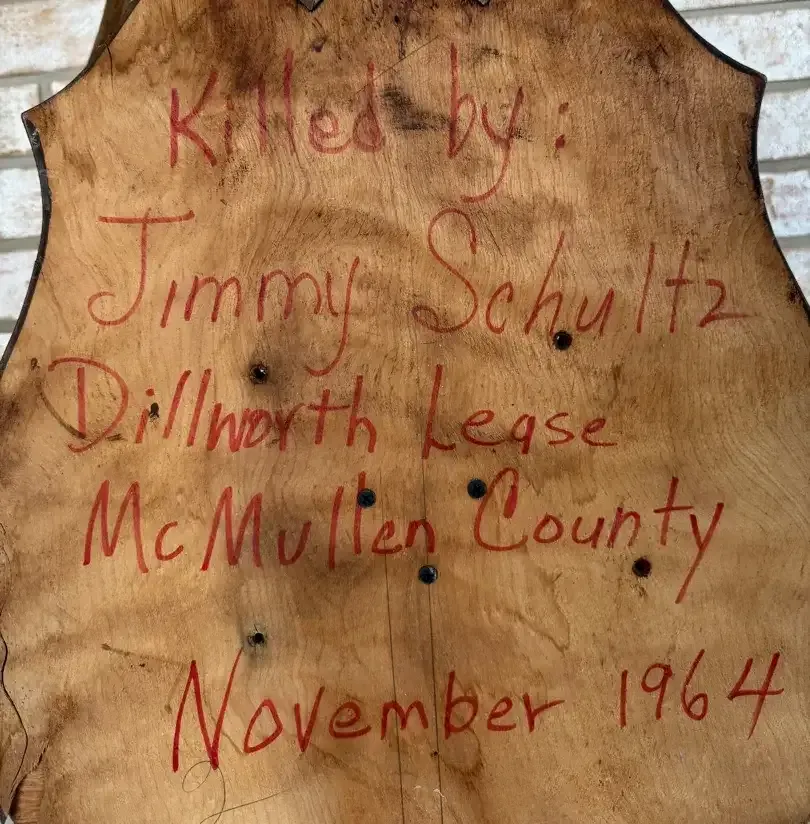 Killed by:
Jimmy Schultz
Dillworth Lease
McMullen County
November 1964